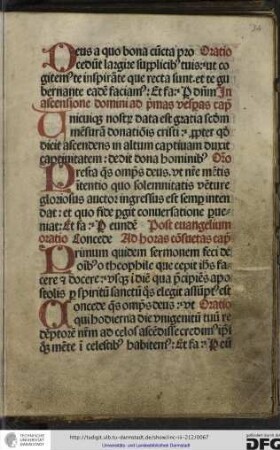 Deus a quo bona cūcta pro Oratio
cedūt largire supplicib; tuis: ut co
gitem; te inspirāte que recta sunt. et te gu
bernante eadē faciam; : Et fa: P dūm In
ascensione domini ad pmas vesperas cap
Unicuiq; nostrꝝ data est gratia scdm
mēsurā donatiōis cristi : ppter qd
dicit ascendens in altum captiuam duxit
captiuitatem : dedit dona hominib; Oro
Presta qs omps deus. ut nre mētis
ītentio quo solemnitatis vēture
gloriosus auctor ingressus est semp inten
dat: et quo fide pgit conuersatione pue
niat: Et fa: P eundē Post euangelium
oratio Concede Ad horas cōsuetas cap
Primum quidem sermonem feci de
oīb; o theophile que cepit ihs fa
cere & docere: vsq; ī diē qua pcipiēs apo
stolis p spiritū sanctū qs elegit assūpt; est
Concede qs omps deus: ut Oratio
qui hodierna die vnigenitū tuū re
dēptorē nrm ad celos ascēdisse credim; ipi
qq; mēte ī celestib; habitem; : Et fa: P eū
http://tudigit.ulb.tu-darmstadt.de/show/inc-iii-212/0067
Universitäts- und Landesbibliothek Darmstadt
TECHNISCHE
UNIVERSITÄT
DARMSTADT
gefördert durch die
DFG